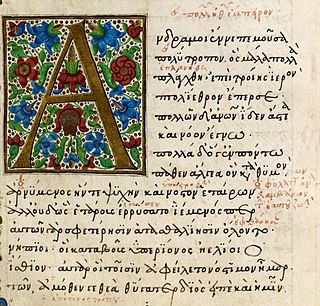 Ἄνδρα μοι ἔννεπε μοῦσα
πολύτροπον, ὃς μάλα πολλὰ
πλάγχθη· ἐπεὶ τροίης ἱερὸν
πτολίεθρον ἔπερσε·
πολλῶν δ' ἀνθρώπων ἴδεν ἄστεα
καὶ νόον ἔγνω·
πολλὰ δ' ὅγ' ἐν πόντω
πάθεν ἄλγεα ὃν κατὰ θυμὸν
ἀρνύμενος ἥν τε ψυχὴν καὶ νόστον ἑταίρων
ἀλλ' οὐδ' ὣς ἑτάρους ἐρρύσατο ἱέμενός περ
αὐτῶν γὰρ σφετέρησιν ἀτασθαλίησιν ὄλοντο
νήπιοι· οἳ κατὰ βοῦς ὑπερίονος ἠελίοιο
ἤσθιον· αὐτὰρ ὁ τοῖσιν ἀφείλετο νόστιμον ἦμαρ
τῶν ἀμόθεν γε θεὰ θύγατερ διὸς εἰπὲ καὶ ἡμῖν